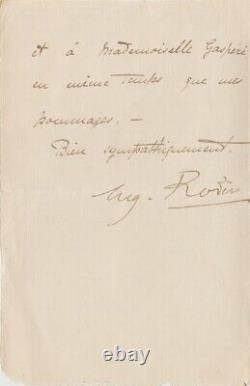 et à Mademoiselle Gasperi
en même temps que mes
hommages. —
Bien sympathiquement.
Aug. Rodin
© ebay.com